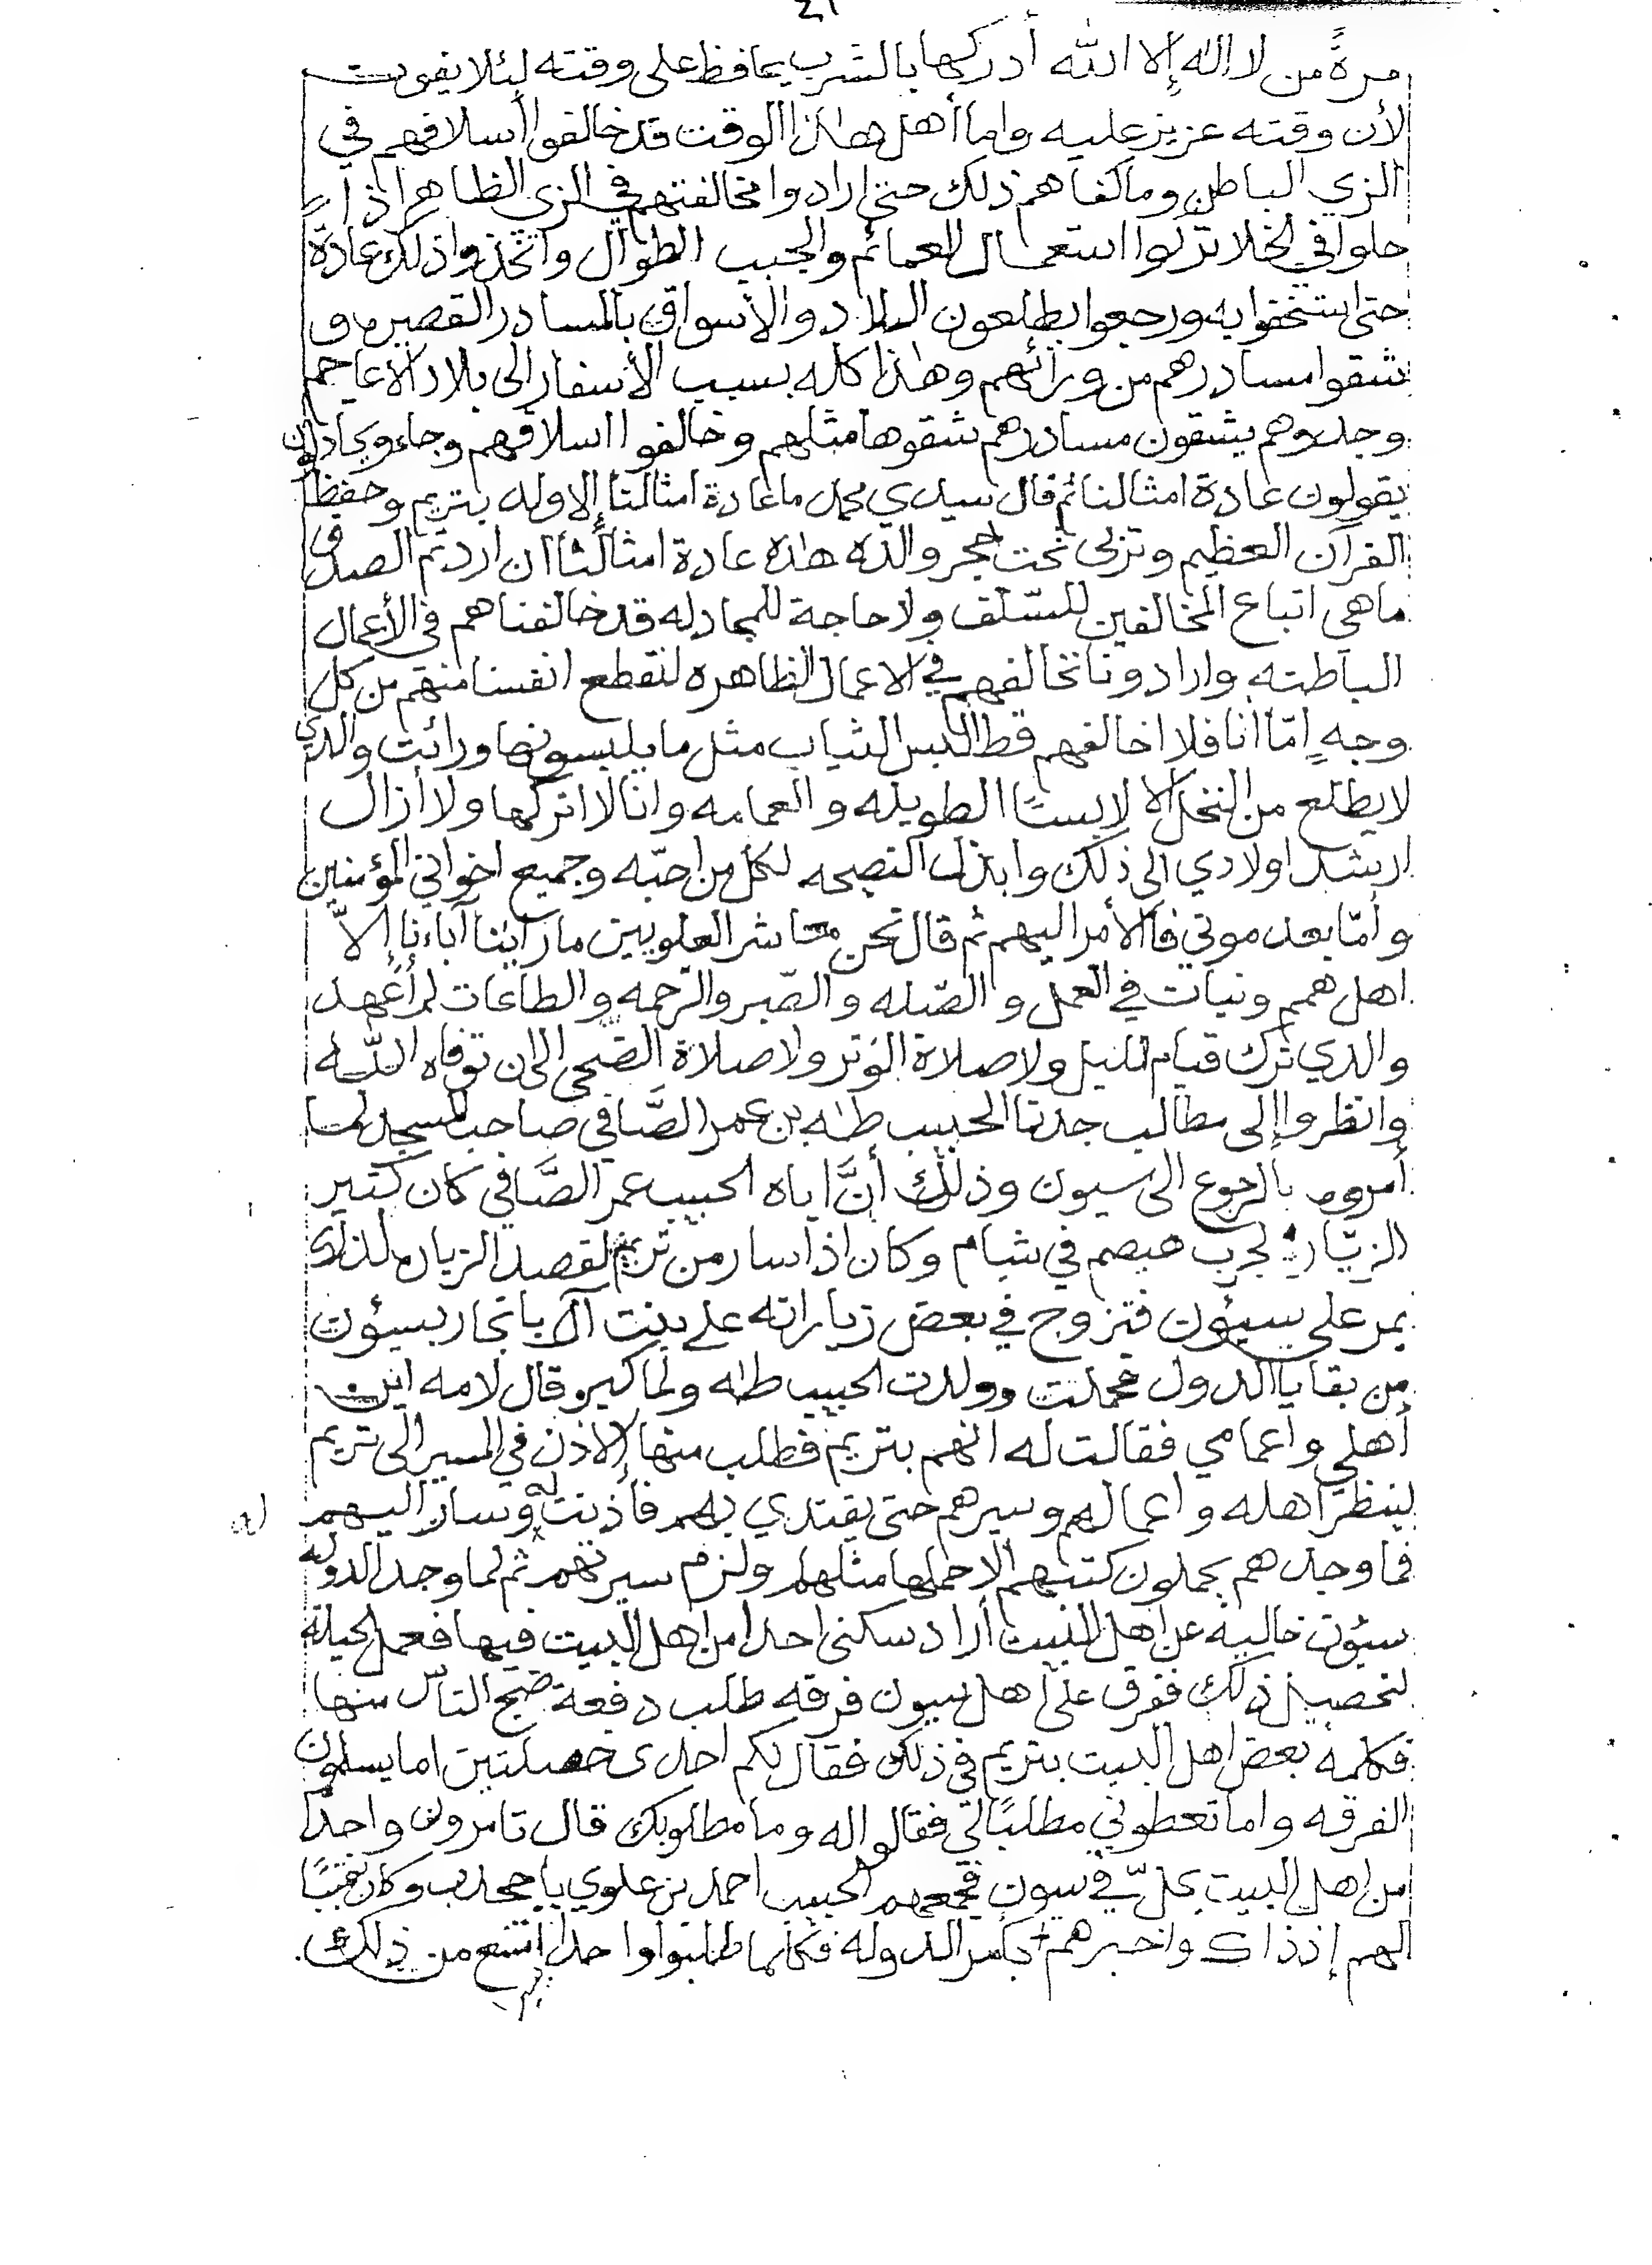 21
مرةً من لا إله إلا الله أدركها بالشرب يحافظ على وقته لئلا يفوت
لأن وقته عزيز عليه واما أهل هاذا الوقت قد خالفوا أسلافهم في
الزي الباطن وما كفاهم ذلك حتى ارادوا مخالفتهم في الزي الظاهر إذا
حلوا في الخلا تركوا استعمال العمائم والجبب الطوال واتخذوا ذلك عادة
حتى استخفوا به ورجعوا يطلعون البلاد والأسواق بالمسادر القصيره و
شقوا مسادرهم من ورائهم وهاذا كله بسبب الأسفار الى بلاد الأعاجم
وجدوهم يشقون مسادرهم شقوها مثلهم وخالفوا اسلافهم وجاءو يجادلون
يقولون عادة امثالنا ثم قال سيدي محمد ما عادة امثالنا إلا وله بتريم وحفظ
القرآن العظيم وتربى تحت حجر والده هاذه عادة امثالنا ان اردتم الصدق
ما هي اتباع المخالفين للسّلف ولا حاجة للمجادله قد خالفناهم في الأعمال
الباطنه وارادونا نخالفهم في الاعمال الظاهره لنقطع انفسنا منهم من كل
وجهٍ امّا أنا فلا اخالفهم قط البس الثياب مثل ما يلبسونها ورائت والدي
لا يطلع من النخل الا لابسًا الطويله والعمامه وانا لا اتركها ولا أزال
ارشد اولادي الى ذلك وابذل النصيحه لكل من احبّه وجميع اخواني المؤمنين
وأمّا بعد موتي فالأمر اليهم ثم قال نحن معاشر العلويين ما رأينا آباءنا إلاّ
اهل همم ونيات في العمل والصّله والصّبر والرّحمه والطاعات لم أعهد
والدي ترك قيام الليل ولا صلاة الوتر ولا صلاة الضحى الى ان توفاه اللّه
وانظروا إلى مطالب جدنا الحبيب طاه بن عمر الصَّافي صاحب المسجد لما
أمروه بالرجوع الى سيون وذلك أنَّ اباه الحبيب عمر الصَّافي كان كثير
الزيّارة لجرب هيصم في شبام وكان اذا سار من تريم لقصد الزياره لذلك
يمر على سيئون فتزوج في بعض زياراته على بنت آل بانجار بسيؤن
من بقايا الدول فحملت وولدت الحبيب طاه ولما كبر وقال لامه اين
أهلي واعمامي فقالت له انهم بتريم فطلب منها الإذن في المسير الى تريم
لينظر أهله واعمالهم وسيرهم حتى يقتدي بهم فأذنت له وسار اليهم
فما وجدهم يحملون كتبهم الا حملها مثلهم ولزم سيرتهم ثم لما وجد الدوله
سيؤن خاليه عن اهل البيت أراد سكنى احدا من اهل البيت فيها فعمل حيلة
لتحصيل ذلك ففرق على أهل سيون فرقه طلب دفعة ضج الناس منها
فكلمه بعض اهل البيت بتريم في ذلك فقال لكم احدى خصلتين اما يسلمون
الفرقه واما تعطوني مطلبًا لي فقالوا له وما مطلوبك قال تامرون واحدًا
من اهل البيت يحلّ في سون فجمعهم الحبيب احمد بن علوي باجحدب وكان نقيبًا
الهم إذذاك واخبرهم بامر الدوله فكلما طلبوا واحدا امتنع من ذلك